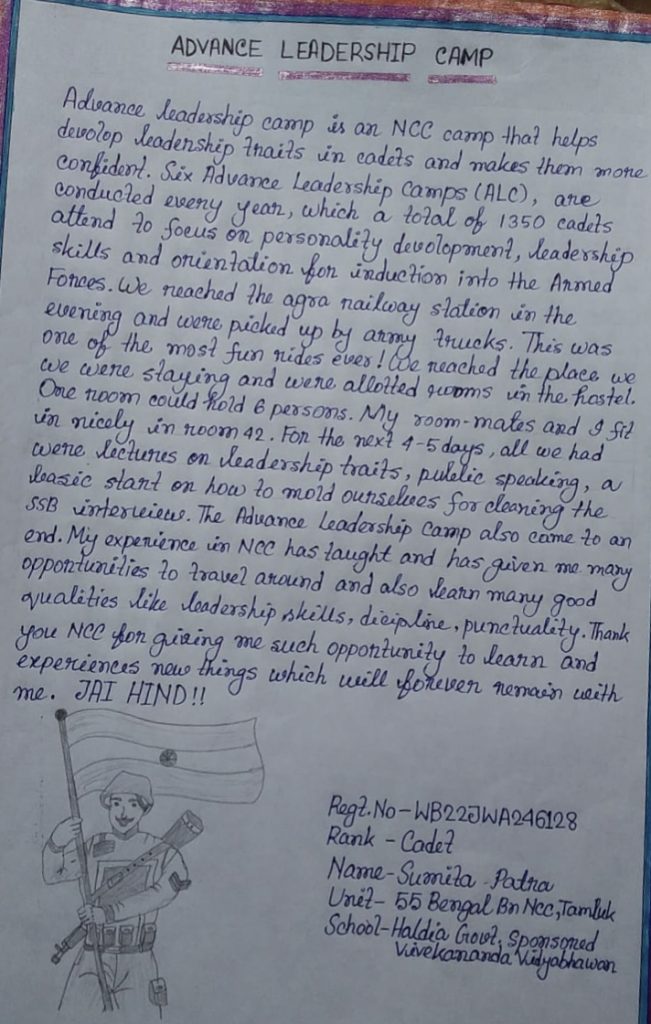 ADVANCE LEADERSHIP CAMP
Advance leadership camp is an NCC camp that helps
devolop leadership traits in cadets and makes them more
confident. Six Advance Leadership Camps (ALC), are
conducted every year, which a total of 1350 cadets
attend to focus on personality devolopment, leadership
skills and orientation for induction into the Armed
Forces. We reached the agra railway station in the
evening and were picked up by army trucks. This was
one of the most fun rides ever! We reached the place we
we were staying and were allotted rooms in the hostel.
One room could hold 6 persons. My room-mates and I fit
in nicely in room 42. For the next 4-5 days, all we had
were lectures on leadership traits, public speaking, a
basic start on how to mold ourselves for cleaning the
SSB interview. The Advance Leadership Camp also came to an
end. My experience in NCC has taught and has given me many
opportunities to travel around and also learn many good
qualities like leadership skills, dicipline, punctuality. Thank
you NCC for giving me such opportunity to learn and
experiences new things which will forever remain with
me. JAI HIND!!
Regt. No - WB22JWA246128
Rank - Cadet
Name - Sumita Patra
Unit - 55 Bengal Bn NCC, Tamluk
School - Haldia Govt. Sponsored
Vivekananda Vidyabhawan